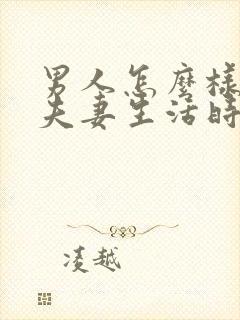 男人怎麽樣
夫妻生活時
凌越